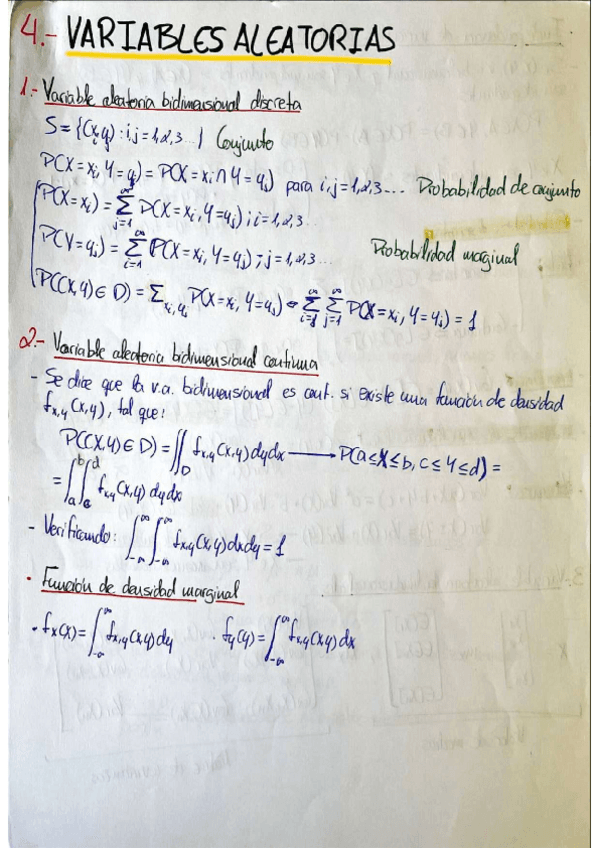 4.- VARIABLES ALEATORIAS
1.- Variable aleatoria bidimensional discreta
S = {(xi, yj) : i, j = 1, 2, 3 ...} Conjunto
P(X = xi, Y = yj) = P(X = xi ∩ Y = yj) para i, j = 1, 2, 3 ... Probabilidad de conjunto
P(X = xi) = ∑_{j=1}^{∞} P(X = xi, Y = yj) ; i = 1, 2, 3 ..
P(Y = yj) = ∑_{i=1}^{∞} P(X = xi, Y = yj) ; j = 1, 2, 3 ... Probabilidad marginal
P((X, Y) ∈ D) = ∑_{xi, yi} P(X = xi, Y = yj) → ∑_{i=1}^{∞} ∑_{j=1}^{∞} P(X = xi, Y = yi) = 1
2.- Variable aleatoria bidimensional continua
- Se dice que la v.a. bidimensional es cont. si existe una función de densidad
f_{x,y}(x,y), tal que:
P((X,Y) ∈ D) = ∬_D f_{x,y}(x,y) dy dx → P(a ≤ X ≤ b, c ≤ Y ≤ d) =
= ∫_a^b ∫_c^d f_{x,y}(x,y) dy dx
- Verificando: ∫_{-∞}^{∞} ∫_{-∞}^{∞} f_{x,y}(x,y) dx dy = 1
· Función de densidad marginal
· f_x(x) = ∫_{-∞}^{∞} f_{x,y}(x,y) dy · f_y(y) = ∫_{-∞}^{∞} f_{x,y}(x,y) dx